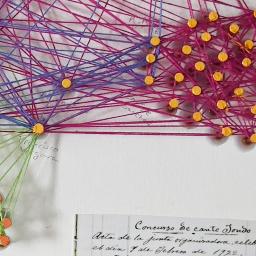 Concurso de cante Jondo
Acta de la junta organizadora celeb
el dia 7 de Febrero de 1922